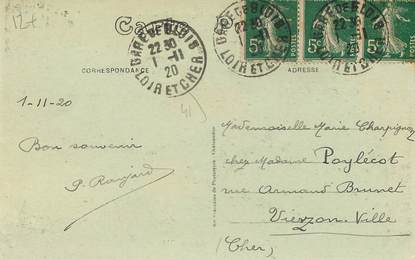 12+
GARE DE BLOIS
22 30
1 -11
20
LOIR ET CHER
GARE DE BLOIS
LOIR ET CHER
5c
POSTES
5c
POSTES
5c
POSTES
CORRESPONDANCE
ADRESSE
41
1-11-20
Bon souvenir
Mademoiselle Marie Charpignon
chez Madame Poylécot
rue Armand Brunet
Vierzon-Ville
(Cher)